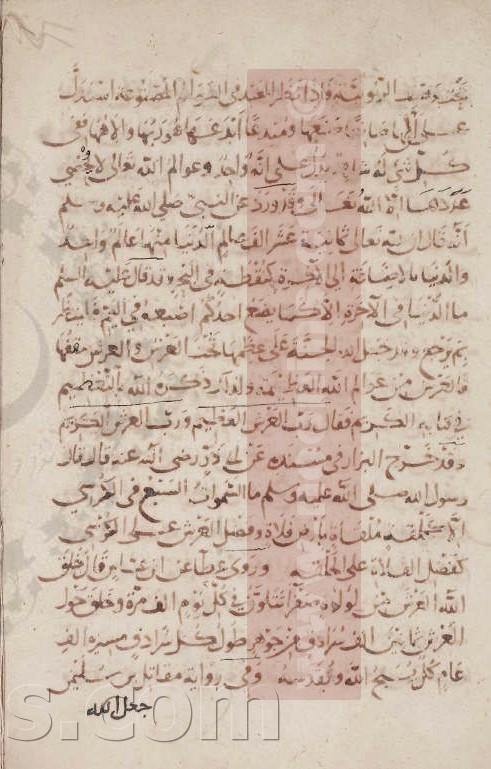 فاذا نظر العبد في العوالم المصنوعة استدل
على ان لها صانعا صنعها ومبدعا ابدعها
كل شئ له شاهد يدل على انه واحد وعوالم الله تعالى لا يحصي
عددها الا الله تعالى وقد ورد عن النبي صلى الله عليه وسلم
انه قال ان لله تعالى ثمانية عشر الف عالم الدنيا منها عالم واحد
والدنيا بالاضافة الى الآخرة كنقطة في البحر وقد قال عليه السلم
ما الدنيا في الآخرة الا كما يضع احدكم اصبعه في اليم فانظر
بم يرجع وقد جعل الله الجنة على عظمها تحت العرش والعرش سقفها
فالعرش من عوالم الله العظيمة ولذا ذكره الله بالتعظيم
في كتابه الكريم فقال رب العرش العظيم ورب العرش الكريم
وقد خرج البزار في مسنده عن ابي ذر رضي الله عنه قال قال
رسول الله صلى الله عليه وسلم ما السموات السبع في الكرسي
الا كحلقة ملقاة بارض فلاة وفضل العرش على الكرسي
كفضل الفلاة على الحلقة وروى عطا عن ابن عباس قال خلق
الله العرش من لولوة صفرا تتلون في كل يوم الف مرة وخلق حول
العرش الف سرادق من جوهر طول كل سرادق مسيرة الف
عام كل يسبح الله ويقدسه وفي رواية مقاتل بن سليمن
جعل الله
s.com